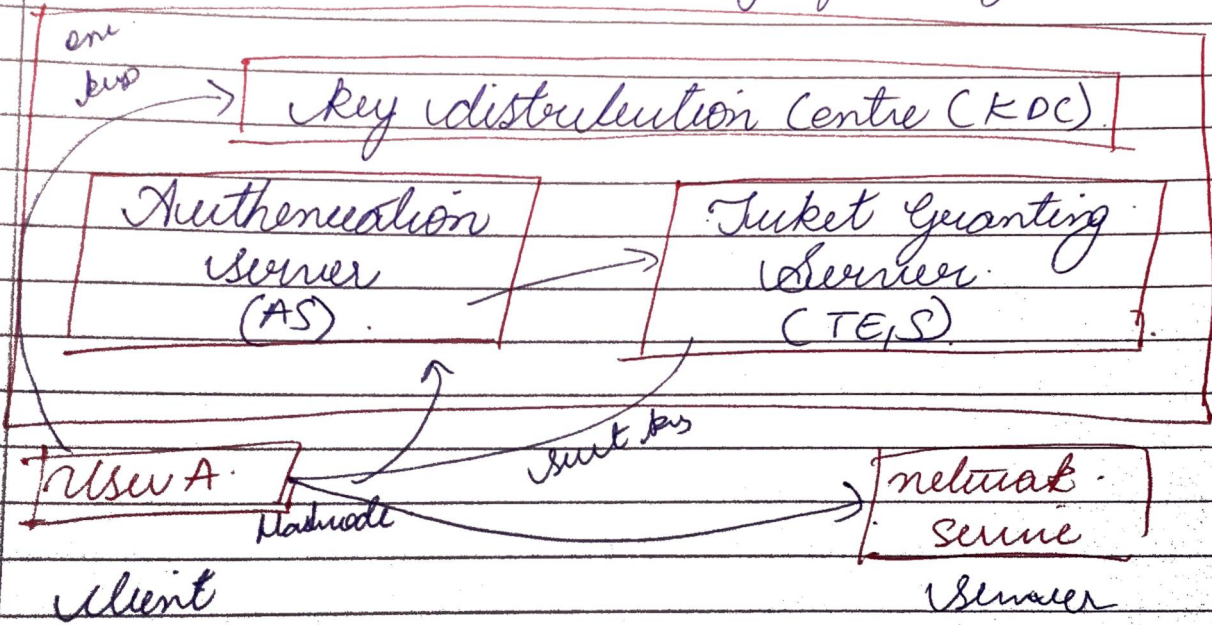 Key distribution Centre (KDC).
Authentication
Server
(AS).
Ticket Granting
Server.
(TGS).
User A.
Hashcode
network.
service
Client
Server